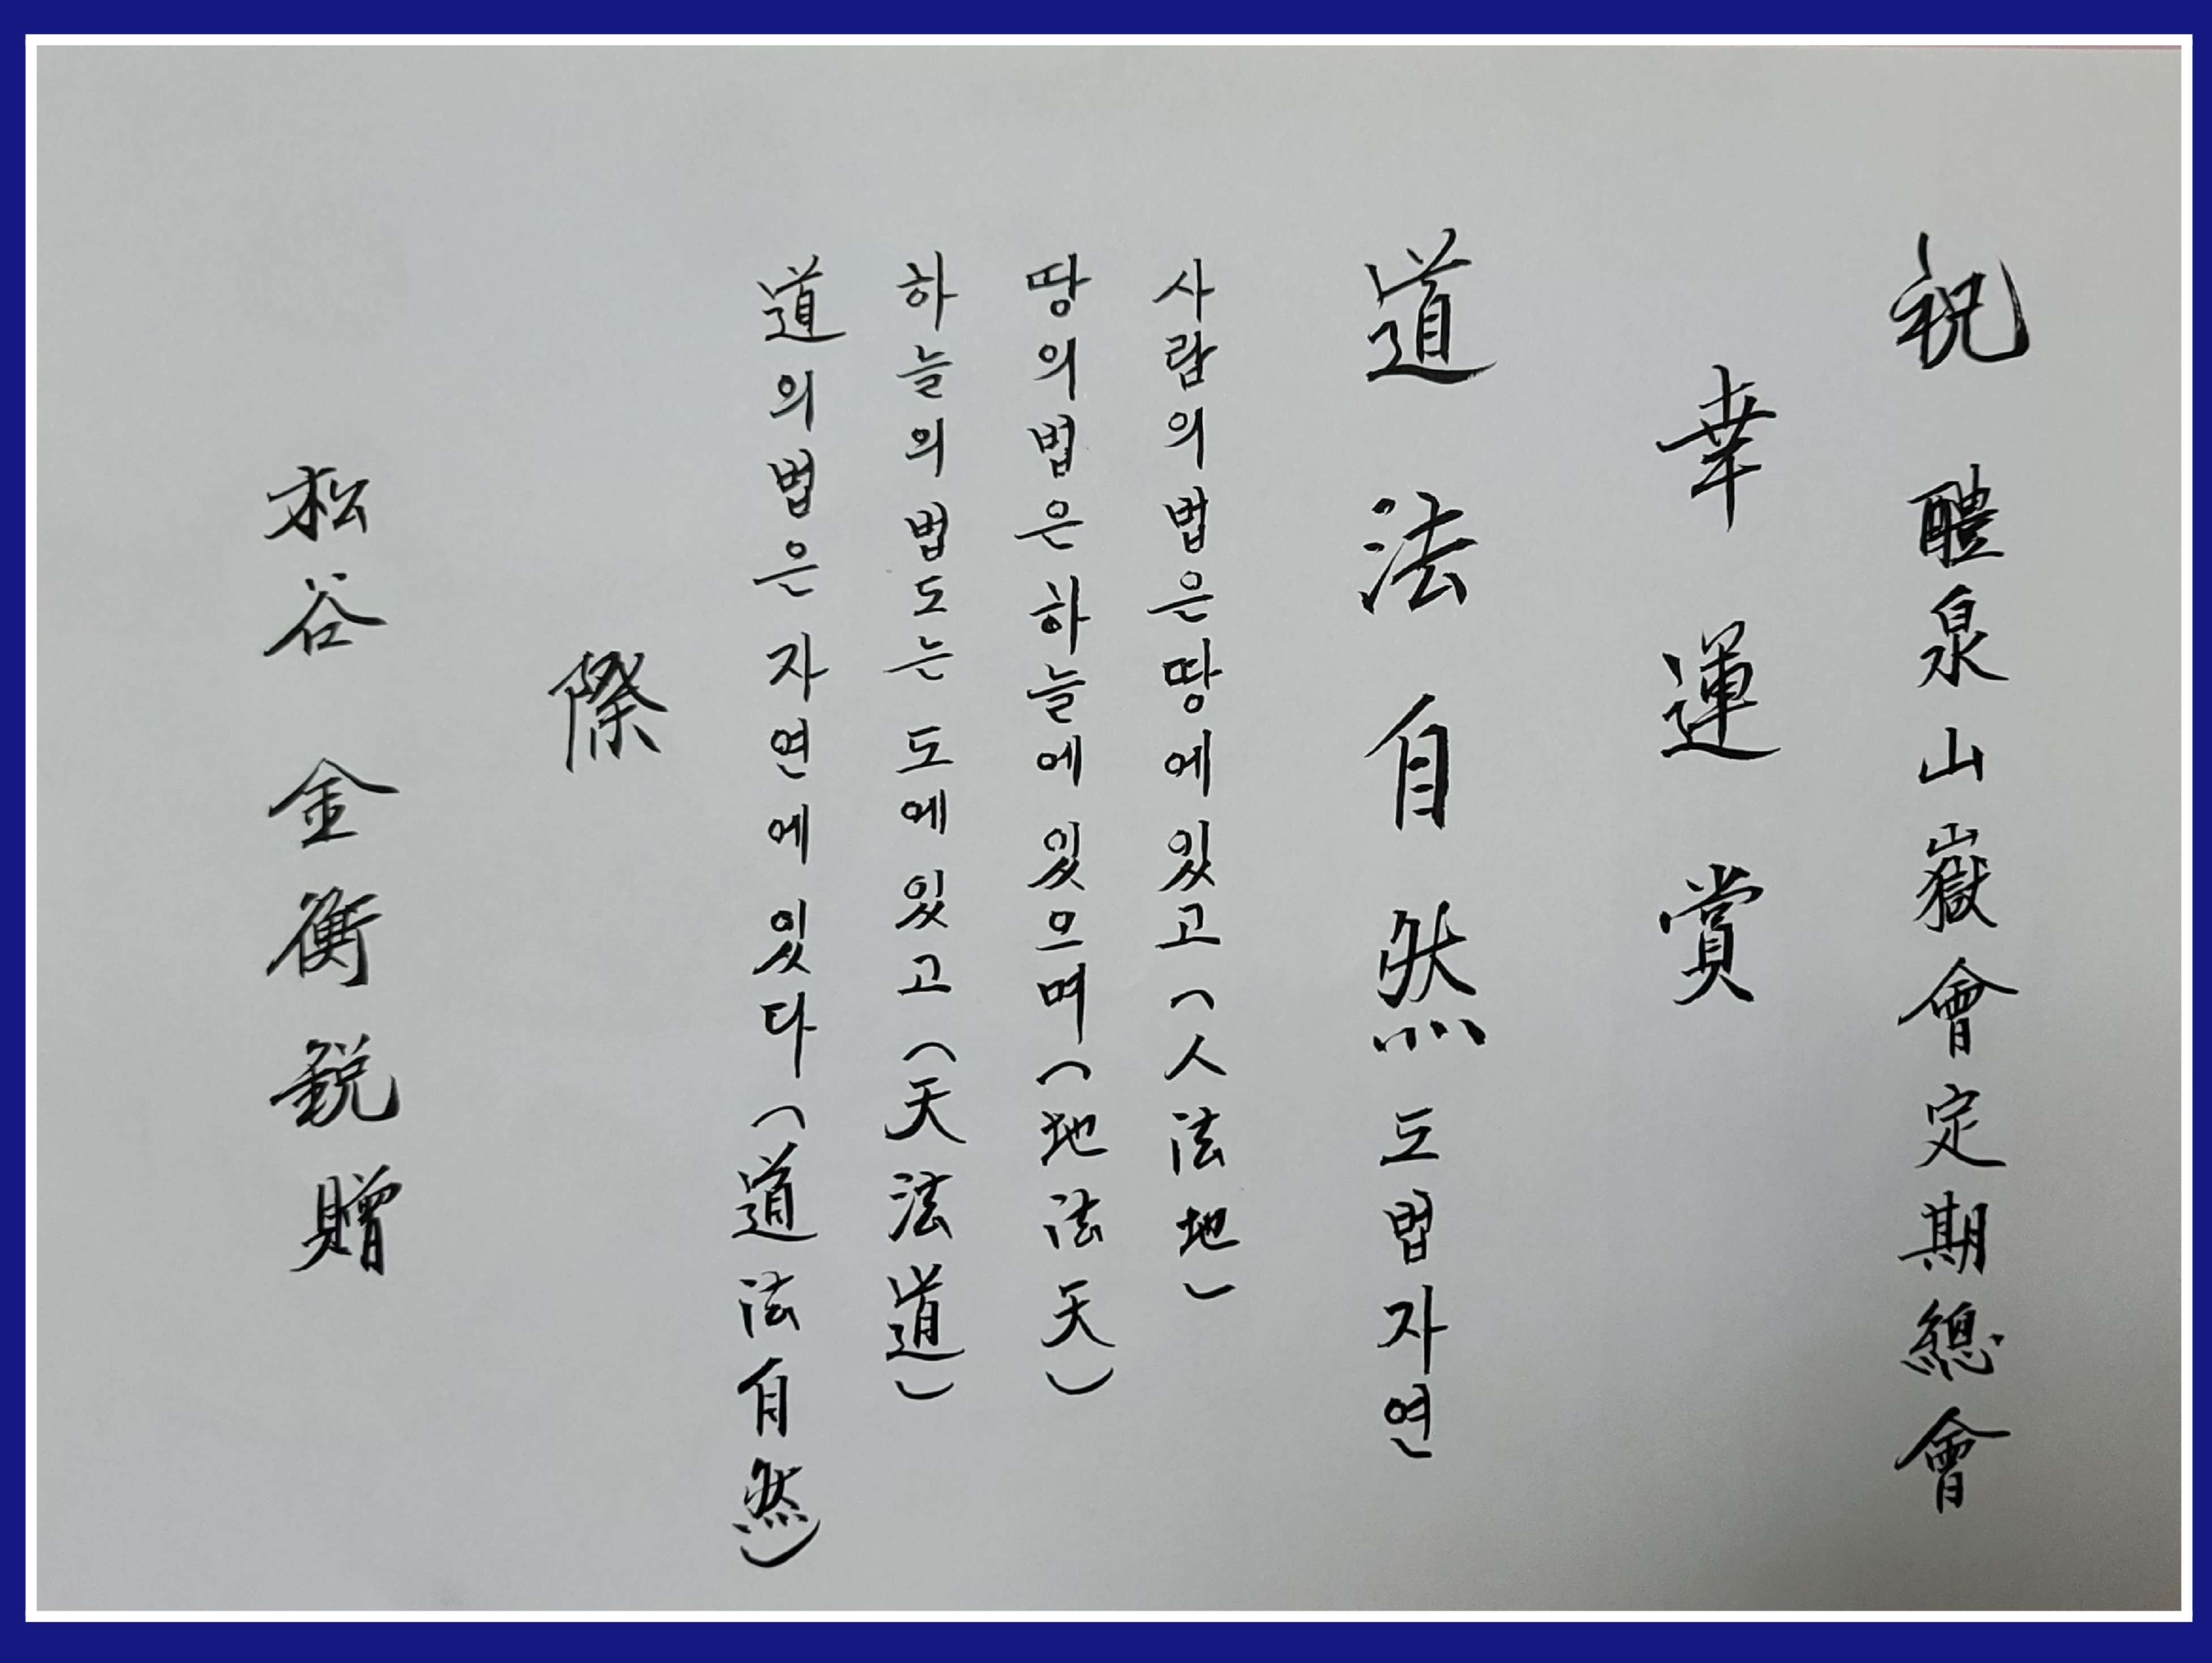 祝 醴泉山嶽會定期總會
幸運賞
道法自然 도법자연
사람의 법은 땅에 있고 (人法地)
땅의 법은 하늘에 있으며 (地法天)
하늘의 법도는 도에 있고 (天法道)
道의 법은 자연에 있다 (道法自然)
際
松谷 金衡銳贈